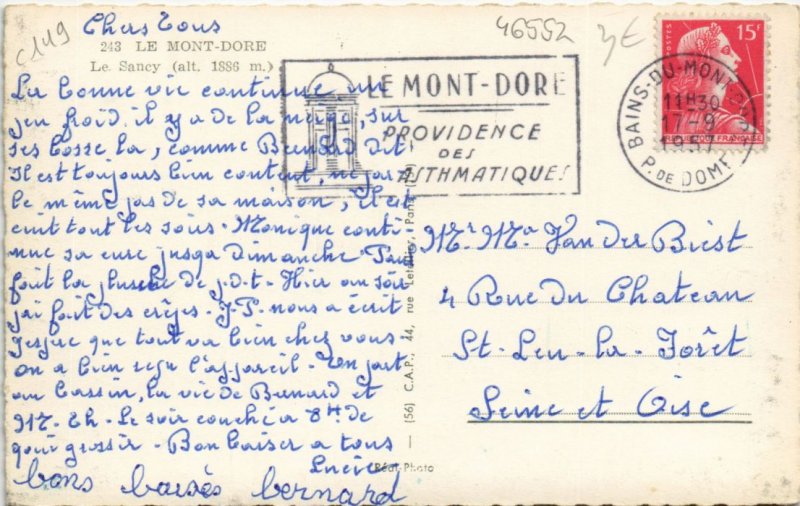 Chers Tous
c149
46552
3€
243 LE MONT-DORE
Le Sancy (alt. 1886 m.)
La bonne vie continue un
peu froid. il y a de la neige, sur
ses bosse la, comme Bernard dit
Il est toujours bien content, ne par
le même pas de sa maison, il est
cuit tout les soirs. Monique conti
nue sa cure jusqa dimanche
fait la de j.d.t. Hier au soir
j'ai fait des crêpes. J.P. nous a écrit
j'espère que tout va bien chez vous
on a bien reçu l'appareil. on part
au bassin, la vie de Bernard et
Mr. Ch. Le soir couché a 8h de
quoi grossir. Bon baiser a tous
Lucie
bons baisés bernard
LE MONT-DORE
PROVIDENCE
DES
ASTHMATIQUES
POSTES
15F
REPUBLIQUE FRANÇAISE
BAINS-DU-MONT-DORE
11H30
17-9
1957
P. DE DOME
(56) C.A.P., 44, rue Letellier, Paris
Réal-Photo
Mr. Me Van der Biest
4 Rue du Chateau
St-Leu-la-Forêt
Seine et Oise